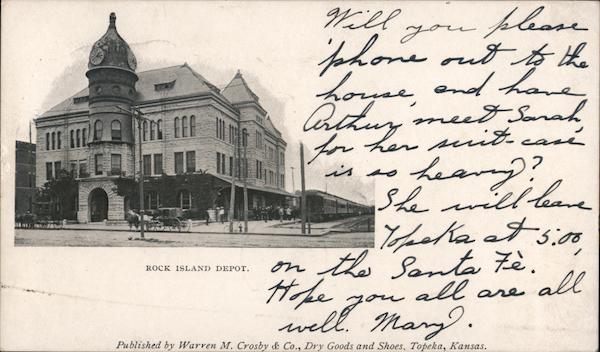 Will you please
'phone out to the
house, and have
Arthur meet Sarah,
for her suit-case
is so heavy?
She will leave
Topeka at 5.00,
on the Santa Fè.
Hope you all are all
well. Mary.
ROCK ISLAND DEPOT.
Published by Warren M. Crosby & Co., Dry Goods and Shoes, Topeka, Kansas.